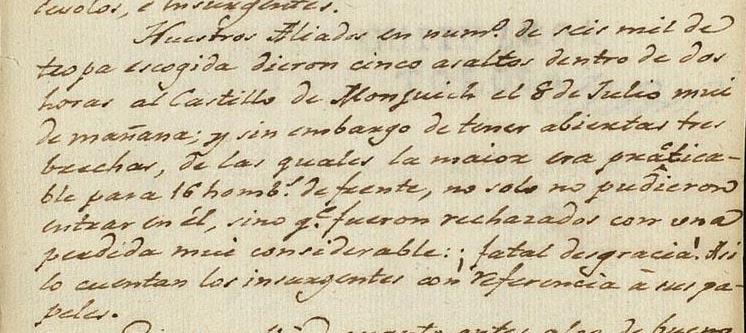 e Insurgentes.
Nuestros Aliados en num.º de seis mil de
tropa escogida dieron cinco asaltos dentro de dos
horas al Castillo de Monjuich el 8 de Julio mui
de mañana; y sin embargo de tener abiertas tres
brechas, de las quales la maior era practica-
ble para 16 homb.s de frente, no solo no pudieron
entrar en él, sino q.e fueron rechazados con una
perdida mui considerable: ¡fatal desgracia! Asi
lo cuentan los insurgentes con referencia à sus pa-
peles.
quanto antes algo de bueno